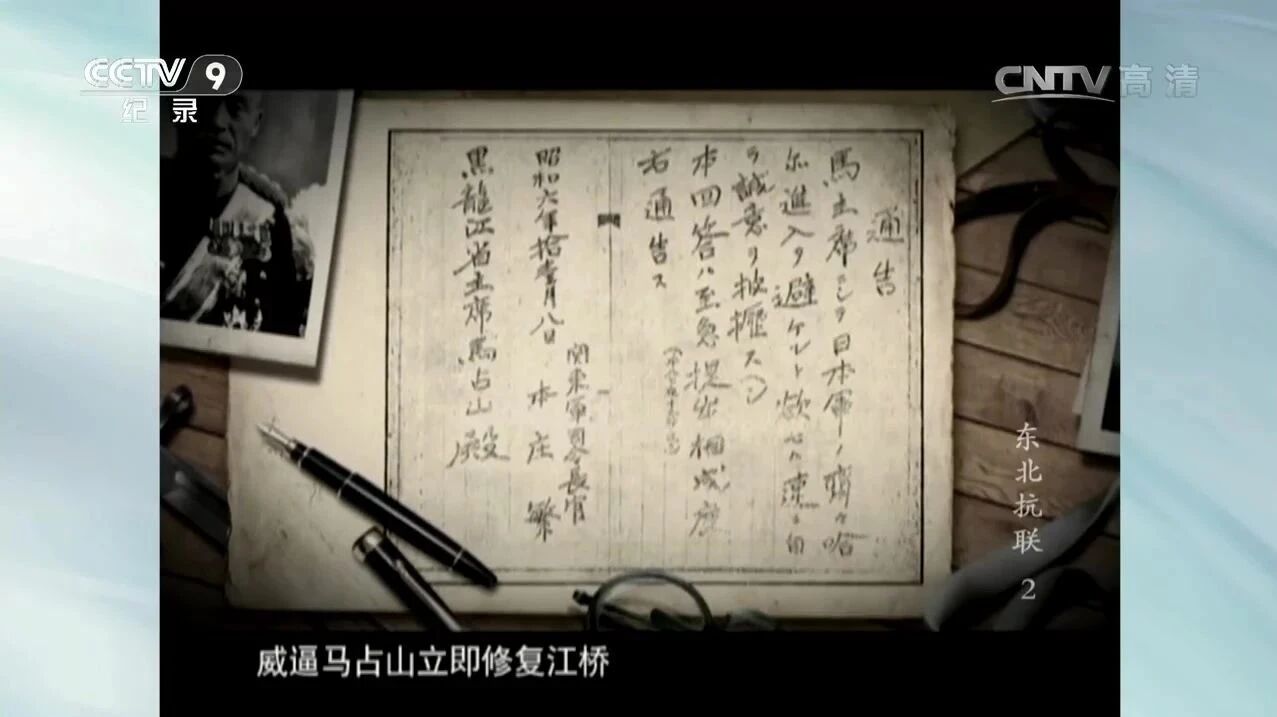 CCTV 9
纪录
CNTV 高清
通告
馬主席ニシテ日本軍ノ齊々哈
尔進入ヲ避ケント欲セハ速ニ自
ラ誠意ヲ披攊ス
本回答ハ至急提出相成度
右通告ス
昭和六年拾壹月八日
関東軍司令長官
本庄 繁
黒龍江省主席馬占山殿
东北抗联 2
威逼马占山立即修复江桥